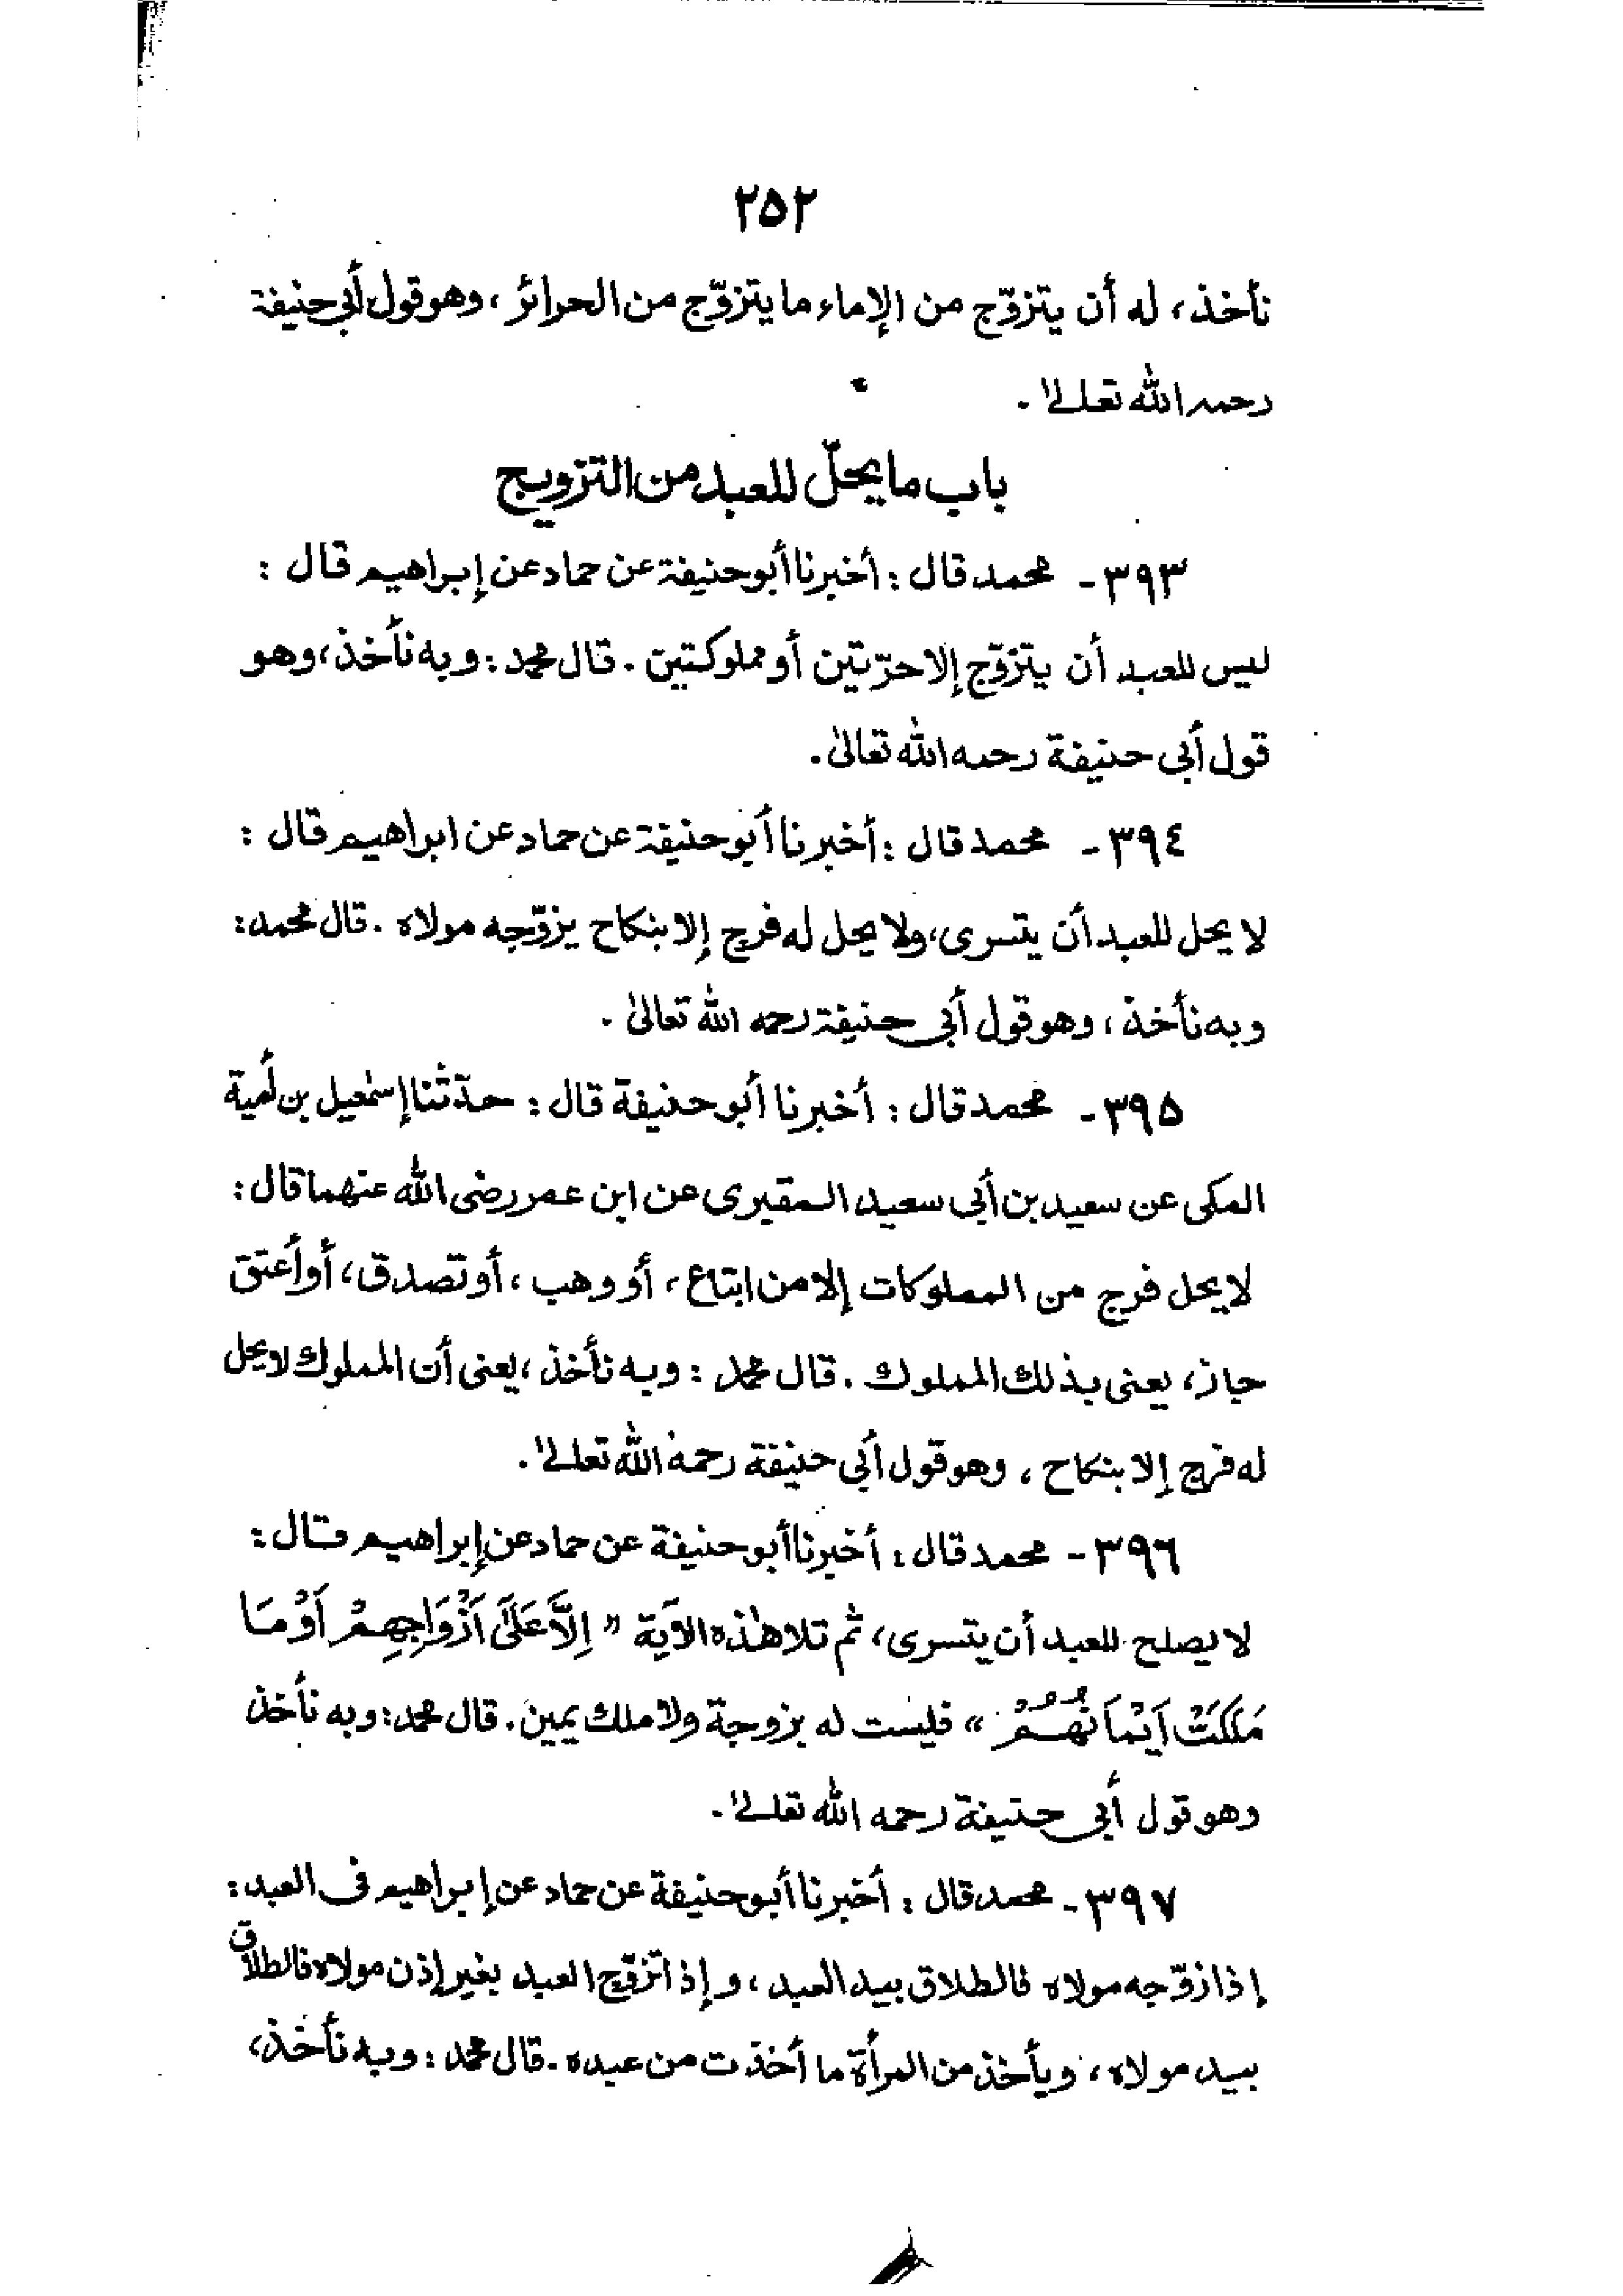 ٢٥٢
نأخذ، له أن يتزوّج من الإماء ما يتزوّج من الحرائر، وهو قول أبي حنيفة
رحمه الله تعالى.
باب ما يحلّ للعبد من التزويج
٣٩٣- محمد قال: أخبرنا أبو حنيفة عن حماد عن إبراهيم قال:
ليس للعبد أن يتزوّج إلا حرّتين أو مملوكتين. قال محمد: وبه نأخذ، وهو
قول أبى حنيفة رحمه الله تعالىٰ.
٣٩٤- محمد قال: أخبرنا أبو حنيفة عن حماد عن ابراهيم قال:
لا يحل للعبد أن يتسرى، ولا يحل له فرج إلا بنكاح يزوّجه مولاه. قال محمد:
وبه نأخذ، وهو قول أبي حنيفة رحمه الله تعالىٰ.
٣٩٥- محمد قال: أخبرنا أبو حنيفة قال: حدّثنا إسمٰعيل بن أمية
المكى عن سعيد بن أبي سعيد المقبرى عن ابن عمر رضى الله عنهما قال:
لا يحل فرج من المملوكات إلا من ابتاع، أو وهب، أو تصدق، أو أعتق
جاز، يعنى بذلك المملوك. قال محمد: وبه نأخذ، يعنى أن المملوك لا يحل
له فرج إلا بنكاح، وهو قول أبى حنيفة رحمه الله تعالىٰ.
٣٩٦- محمد قال: أخبرنا أبو حنيفة عن حماد عن إبراهيم قال:
لا يصلح للعبد أن يتسرى، ثم تلا هٰذه الآية "اِلَّا عَلَىٰٓ اَزْوَاجِهِمْ اَوْ مَا
مَلَكَتْ اَيْمَانُهُمْ" فليست له بزوجة ولا ملك يمين. قال محمد: وبه نأخذ
وهو قول أبي حنيفة رحمه الله تعالىٰ.
٣٩٧- محمد قال: أخبرنا أبو حنيفة عن حماد عن إبراهيم فى العبد:
إذا زوّجه مولاه فالطلاق بيد العبد، وإذا تزوّج العبد بغير إذن مولاه فالطلاق
بيد مولاه، ويأخذ من المرأة ما أخذت من عبده. قال محمد: وبه نأخذ،